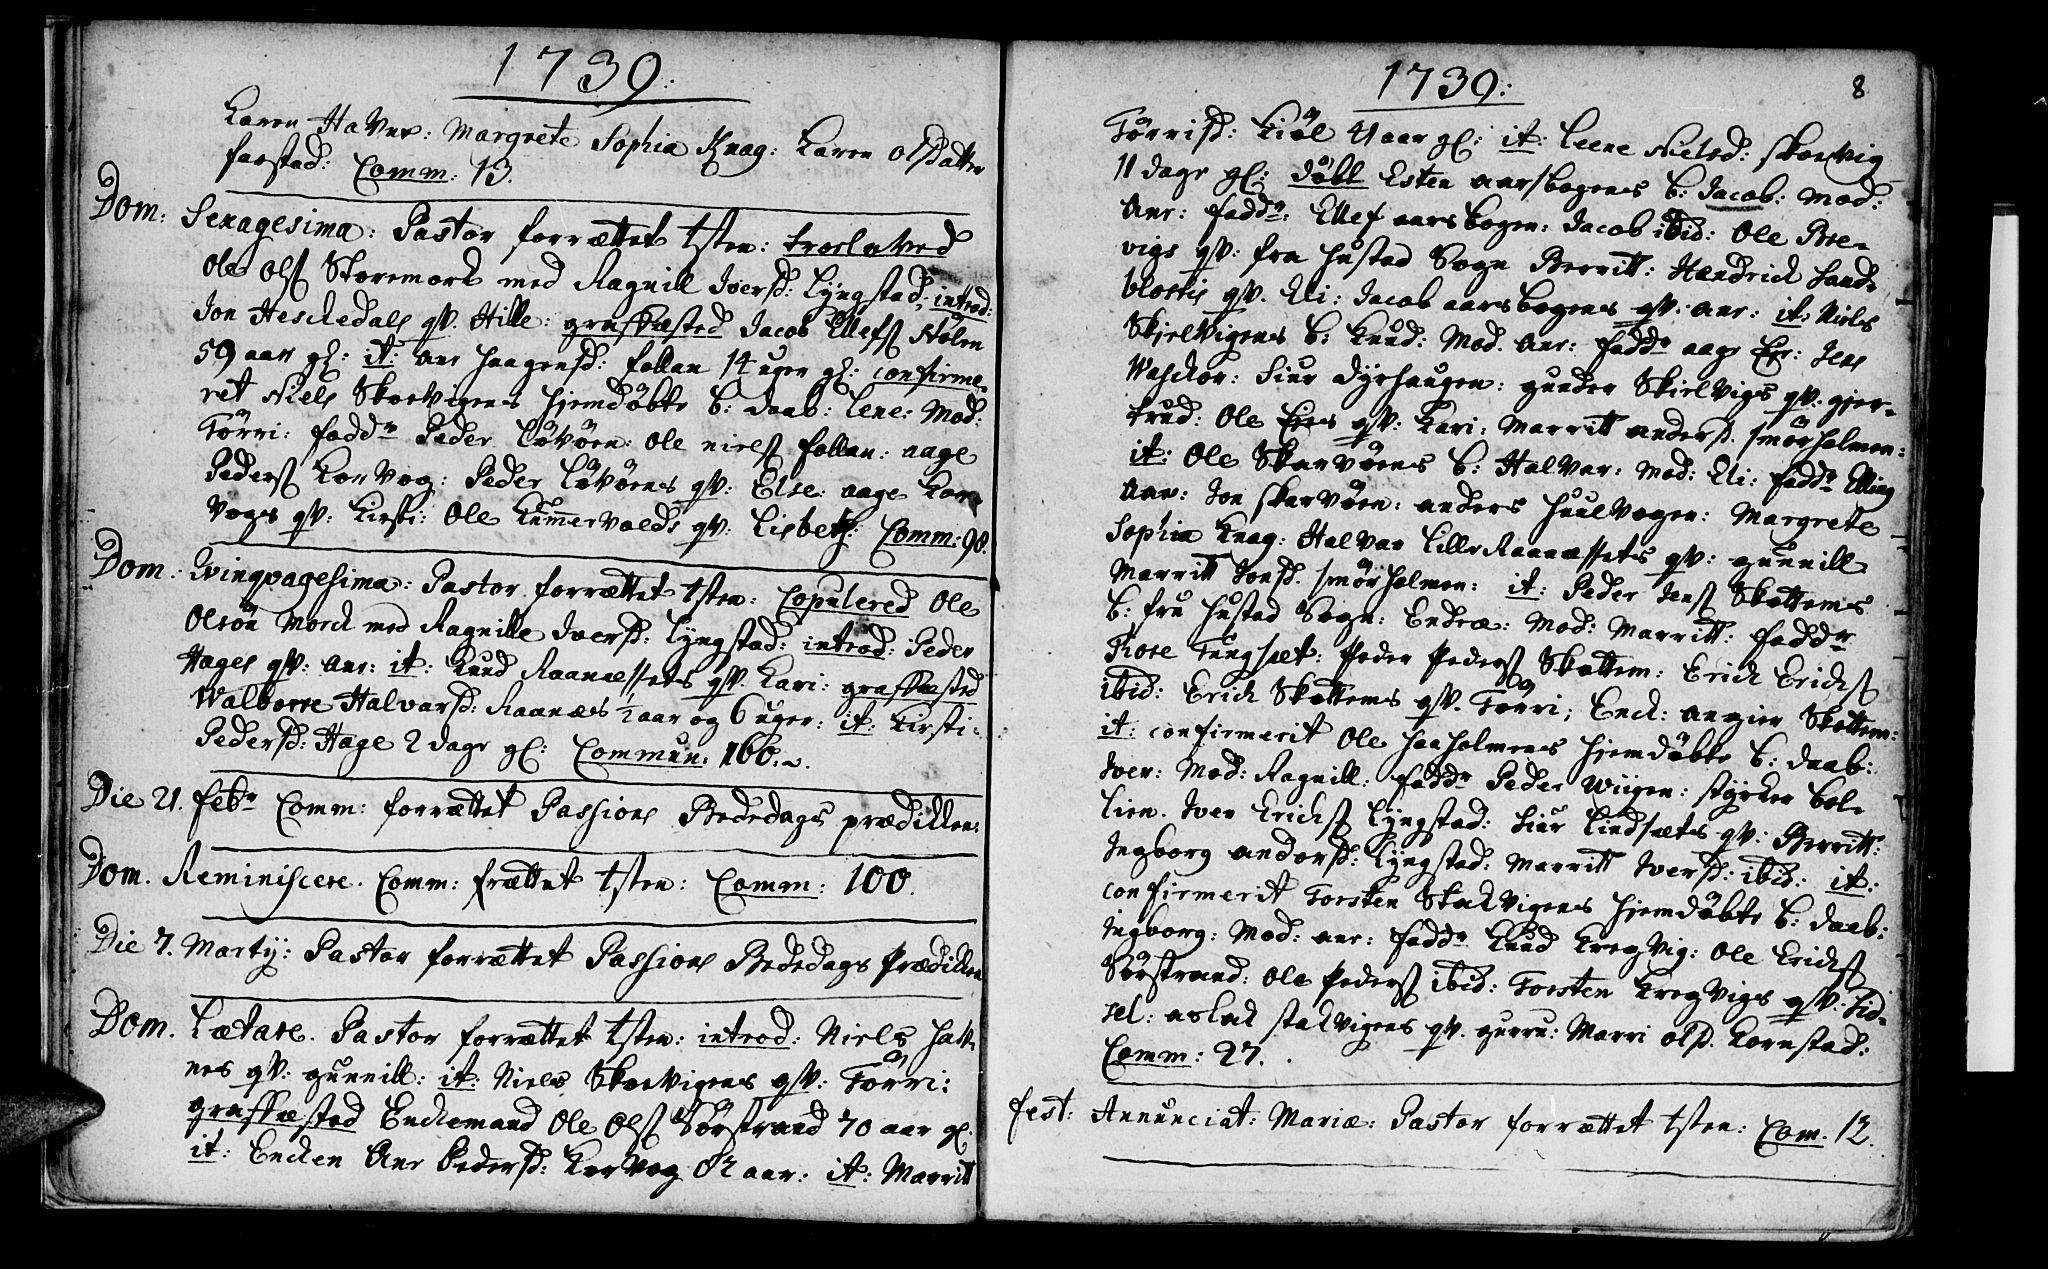 1739:
Karen Haver: Margrete Sophia Knag: Karen Olsdatter
farstad: Comm: 13.
Dom: Sexagesima: Pastor forrættet tsten: troelaved
Ole Ols Storemork med Ragnill Iversd: Lyngstad, introd:
Jon Heschedals qv. Hille: graffæsted Jacob Ellefs Holen
59 aar gl: it: Anr Haagensd: follan 14 uger gl: confirme-
ret Niels Skorvigens hjemdøbte b: daab: Lene: Mod:
Törri: fadd: Peder Lövöen: Ole niels follan: aage
Peders Korvog: Peder Lövöens qv: Else: aage Kor-
vogs qv: Kirsti: Ole Kummervolds qv: Lisbeth: Comm: 98.
Dom: Qvinqvagesima: Pastor forrættet tsten: Copulered Ole
Olsön Morck med Ragnille Iversd: Lyngstad: introd: Peder
Hages qv: anr: it: Knud Raanæssets qv. Kari: graffæsted
Walborre Halvarsd: Raanæs 1/2 aar og 6 uger: it: Kirsti
Pedersd: Hage 2 dage gl: Commun: 160.
Die 21. febr Comm: forrættet Passions Bededags prædiken:
Dom. Reminiscere. Comm: frættet tsten: Comm: 100.
Die 7. Martij: Pastor forrættet Passions Bededags Prædiken
Dom. Lætare. Pastor forrættet tsten: introd: Niels Hatt-
nes qv: gunnill: it: Niels Skorvigens qv: Törri:
graffæsted Enckemand Ole Ols Sörstrand 70 aar gl.
it: Encken Anr Pedersd: Korvog 82 aar: it: Marritt
1739:
8
Törrisd: Kiöl 41 aar gl: it: Leene Nielsd: Skorvig
11 dage gl: döbt Esten aarsbogens b: Jacob: mod:
Anr: fadd: Ellef aarsbogen: Jacob ibid: Ole Bre-
vigs qv: fra Hustad Sogn Berritt: Hendrick Sand-
blostis qv. Eli: Jacob aarsbogens qv: anr: it: Niels
Skjelvigens b: Knud: Mod. Anr: fadd aage Ers: Jens
Waschor: Siur Dyrhaugen: gunder Skielvigs qv: gjer-
trud: Ole Ers qv: Kari: Marritt anders. smörholmen:
it: Ole Skarvöens b: Halvar: mod: Eli: fadd Elling
Aar: Jon skarvöen: anders Huulvogen: Margrete
Sophia Knag: Halvar Lille Raanæssets qv: gunnill
Marritt Jonsd. smörholmen: it: Peder Jens Skottems
b: fru Hustad Sogn: Endræ: Mod: Marritt: fadd
Roee Tungsæt: Peder Peders Skottem: Erick Ericks
ibid: Erick Skottems qv. Törri; Enck: angier Skottem:
it: confirmerit Ole Haaholmens hjemdøbte b: daab:
Iver: Mod: Ragnill: fadd Peder Wiigen: styrker bol-
lien. Iver Ericks Lyngstad: Siur Lindsæts qv: Berritt:
Ingborg andersd: Lyngstad: Marritt Iversd: ibid: it:
confirmerit Torsten Stakvigens hjemdøbte b: daab:
Ingborg: Mod: anr: fadd Knud Kregvig: Ole Ericks
Sörstrand: Ole Peders ibid: Torsten Kregvigs qv: Sid-
sel: aslak stakvigens qv. gurru: Marri olsd. Kornstad:
Comm: 27.
fest: Annunciat: Mariæ: Pastor forrættet tsten: Com. 12.